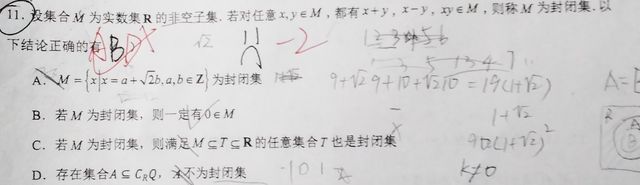 11. 设集合 M 为实数集 R 的非空子集. 若对任意 x,y∈M，都有 x+y，x−y，xy∈M，则称 M 为封闭集. 以
下结论正确的有 ABD
√2 11 −2
A. M={x|x=a+√2b,a,b∈Z} 为封闭集
9+√2 9+10+√2 10 = 19(1+√2)
B. 若 M 为封闭集，则一定有 0∈M
1+√2
C. 若 M 为封闭集，则满足 M⊆T⊆R 的任意集合 T 也是封闭集
90(1+√2)²
D. 存在集合 A⊆C_RQ，A不为封闭集
−1 0 1
k≠0
A=